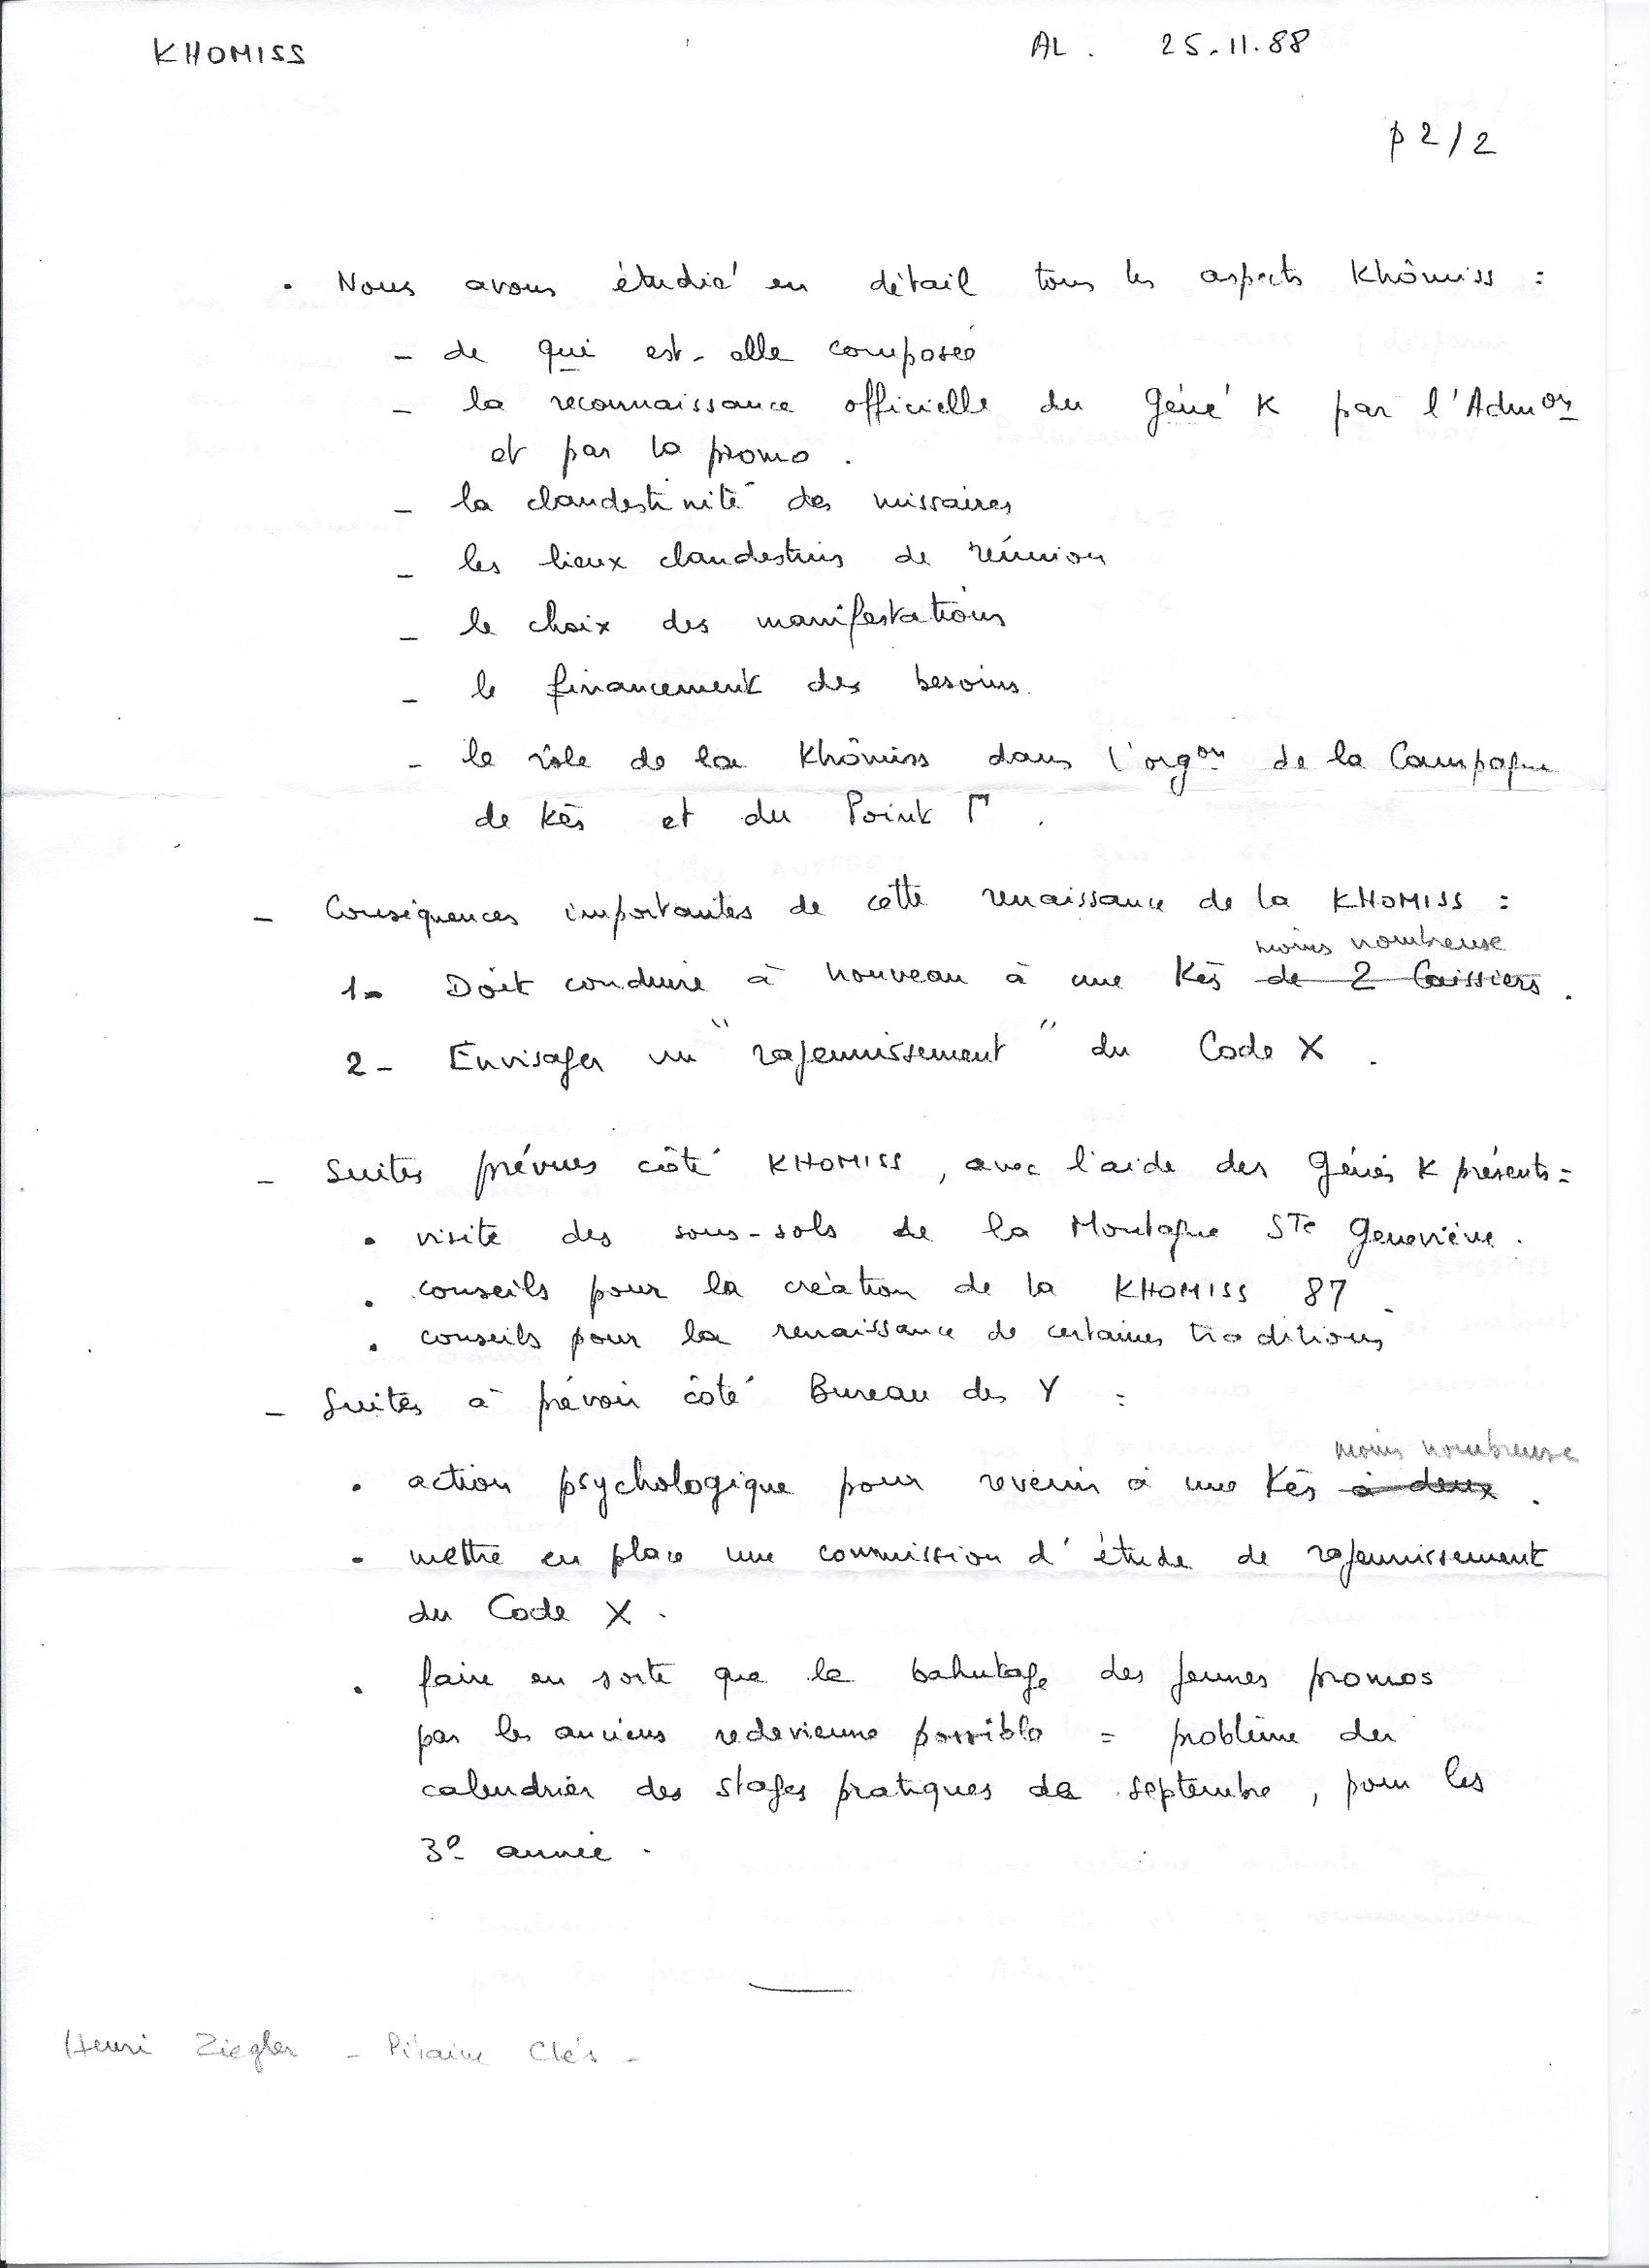 KHOMISS AL. 25.11.88
p 2/2
• Nous avons étudié en détail tous les aspects Khômiss :
- de qui est-elle composée
- la reconnaissance officielle du Géné K par l'Admon
et par la promo.
- la clandestinité des missaires
- les lieux clandestins de réunion
- le choix des manifestations
- le financement des besoins.
- le rôle de la Khômiss dans l'orgon de la Campagne
de Kès et du Point Γ.
- Conséquences importantes de cette renaissance de la KHOMISS :
moins nombreuse
1- Doit conduire à nouveau à une Kès de 2 Caissiers.
2- Envisager un "rajeunissement" du Code X.
- Suites prévues côté KHOMISS, avec l'aide des Génés K présents :
• visite des sous-sols de la Montagne Ste Geneviève.
• conseils pour la création de la KHOMISS 87.
• conseils pour la renaissance de certaines traditions
- Suites à prévoir côté Bureau des Y :
moins nombreuse
• action psychologique pour revenir à une Kès à deux.
• mettre en place une commission d'étude de rajeunissement
du Code X.
• faire en sorte que le bahutage des jeunes promos
par les anciens redevienne possible = problème du
calendrier des stages pratiques de septembre, pour les
3e année.
Henri Ziegler - Pitaine Clés -